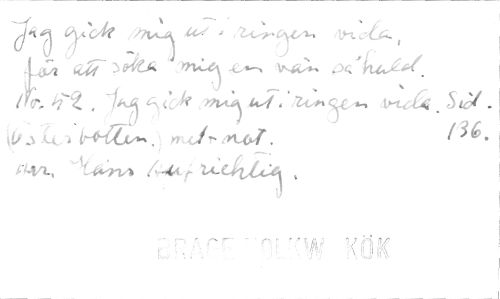 Jag gick mig ut i ringen vida,
för att söka mig en vän så huld.
No. 52. Jag gick mig ut i ringen vida. Sid. 136.
(Österbotten.) mel+not.
arr. Hans Aufrichtig.
BRAGE VOLKW KÖK